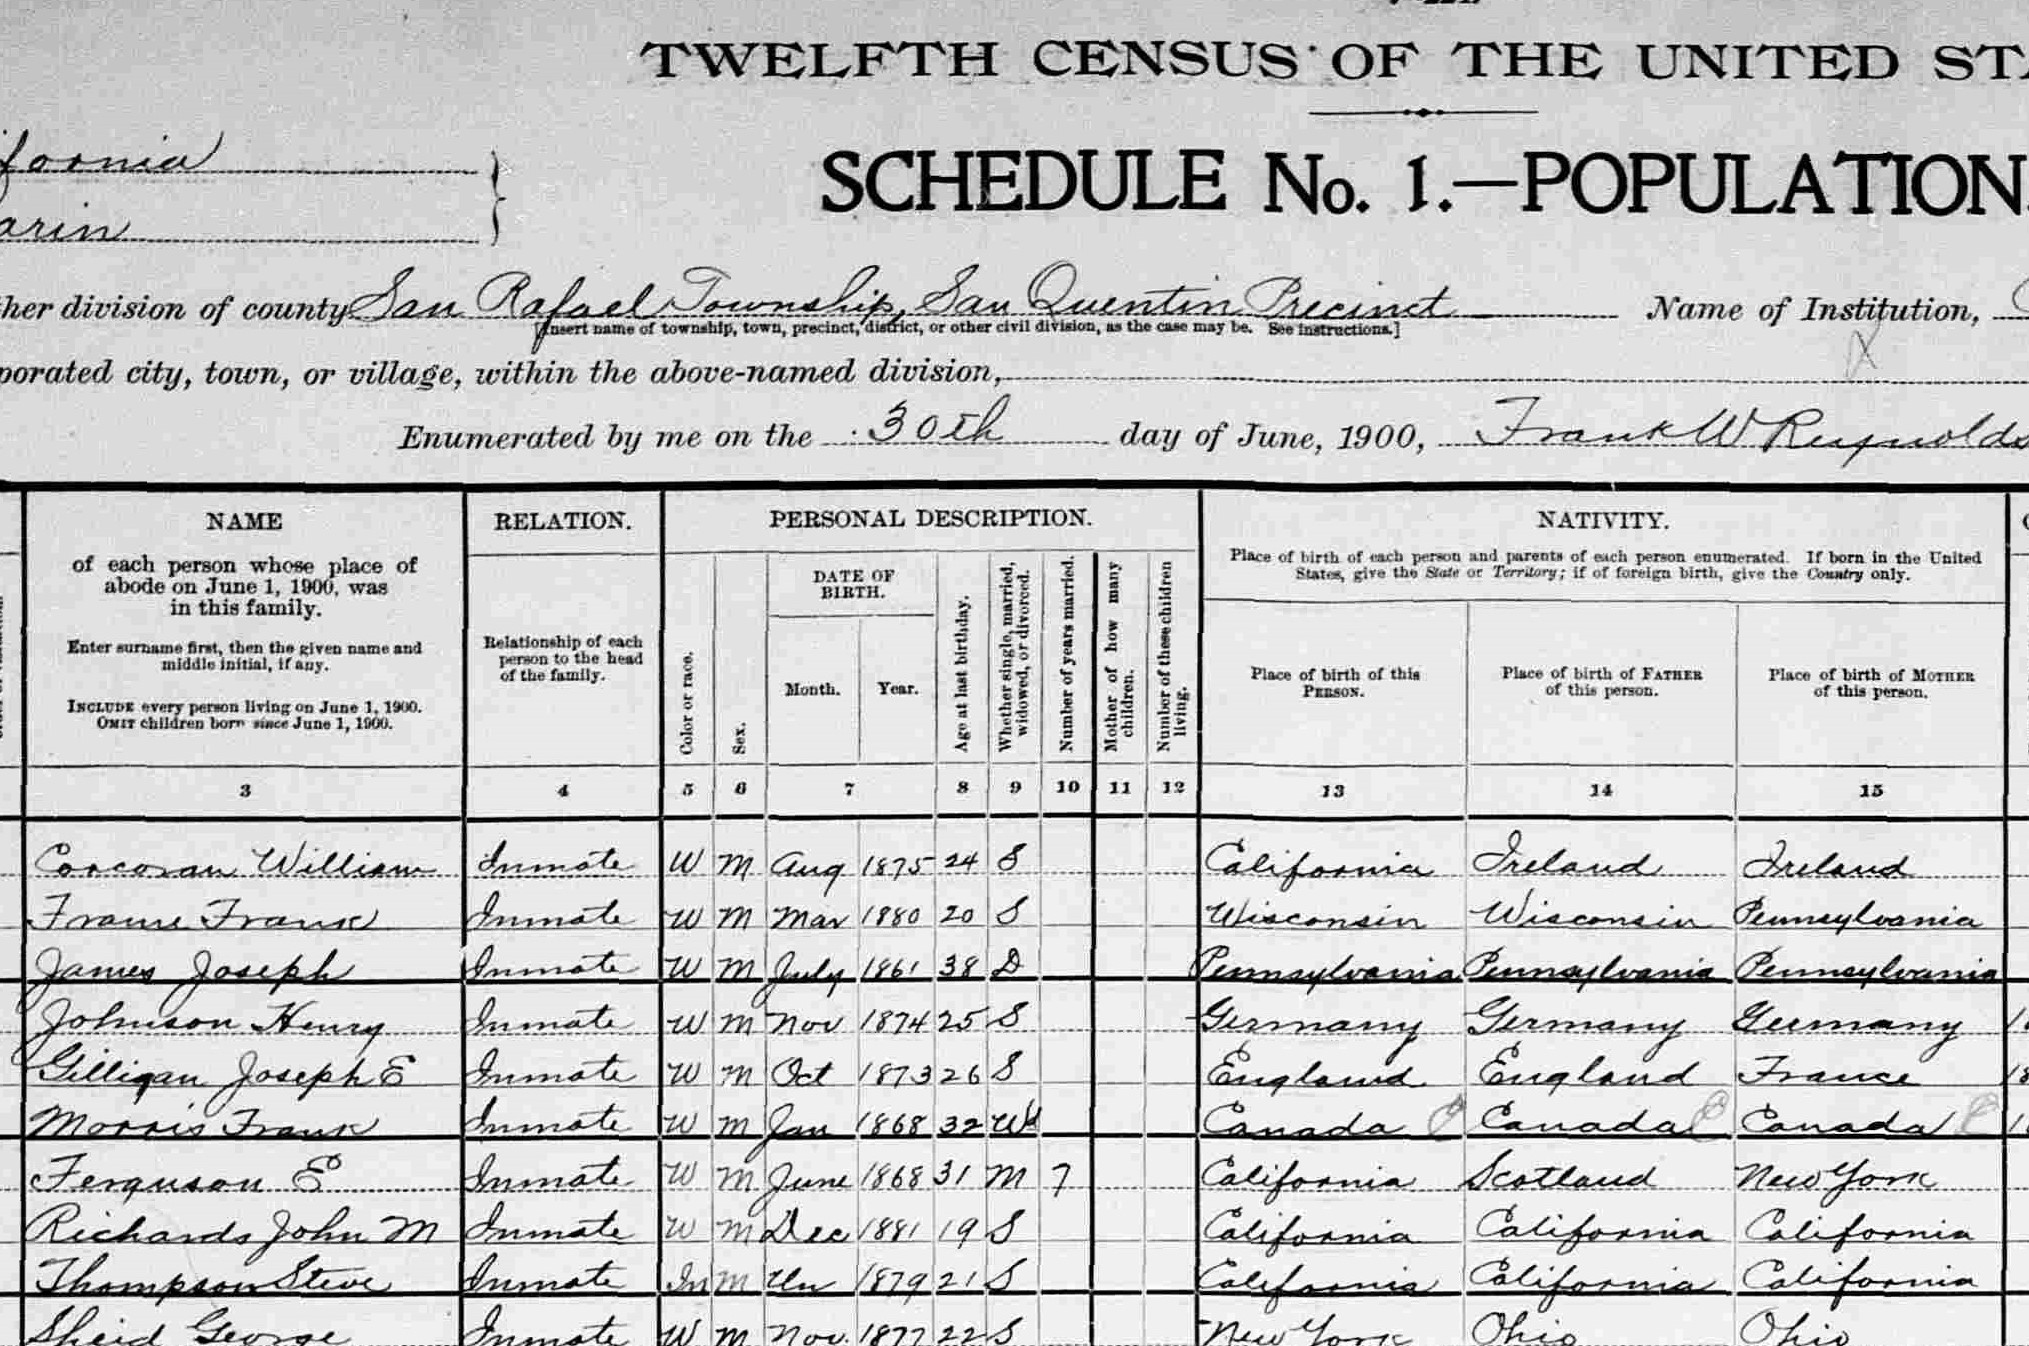 TWELFTH CENSUS OF THE UNITED STA
SCHEDULE No. 1.—POPULATION.
ifornia
arin
her division of county San Rafael Township, San Quentin Precinct Name of Institution,
[Insert name of township, town, precinct, district, or other civil division, as the case may be. See instructions.]
X
porated city, town, or village, within the above-named division,
Enumerated by me on the 30th day of June, 1900, Frank W Reynolds
NAME
of each person whose place of
abode on June 1, 1900, was
in this family.
Enter surname first, then the given name and
middle initial, if any.
INCLUDE every person living on June 1, 1900.
OMIT children born since June 1, 1900.
RELATION.
Relationship of each
person to the head
of the family.
PERSONAL DESCRIPTION.
Color or race.
Sex.
DATE OF
BIRTH.
Month. Year.
Age at last birthday.
Whether single, married,
widowed, or divorced.
Number of years married.
Mother of how many
children.
Number of these children
living.
NATIVITY.
Place of birth of each person and parents of each person enumerated. If born in the United
States, give the State or Territory; if of foreign birth, give the Country only.
Place of birth of this
PERSON.
Place of birth of FATHER
of this person.
Place of birth of MOTHER
of this person.
3 4 5 6 7 8 9 10 11 12 13 14 15
Corcoran William Inmate W M Aug 1875 24 S California Ireland Ireland
Frame Frank Inmate W M Mar 1880 20 S Wisconsin Wisconsin Pennsylvania
James Joseph Inmate W M July 1861 38 D Pennsylvania Pennsylvania Pennsylvania
Johnson Henry Inmate W M Nov 1874 25 S Germany Germany Germany 1
Gilligan Joseph E Inmate W M Oct 1873 26 S England England France 18
Morris Frank Inmate W M Jan 1868 32 Wd Canada Canada Canada 1
Ferguson E Inmate W M June 1868 31 M 7 California Scotland New York
Richards John M Inmate W M Dec 1881 19 S California California California
Thompson Steve Inmate In M Un 1879 21 S California California California
Sheid George Inmate W M Nov. 1877 22 S New York Ohio Ohio